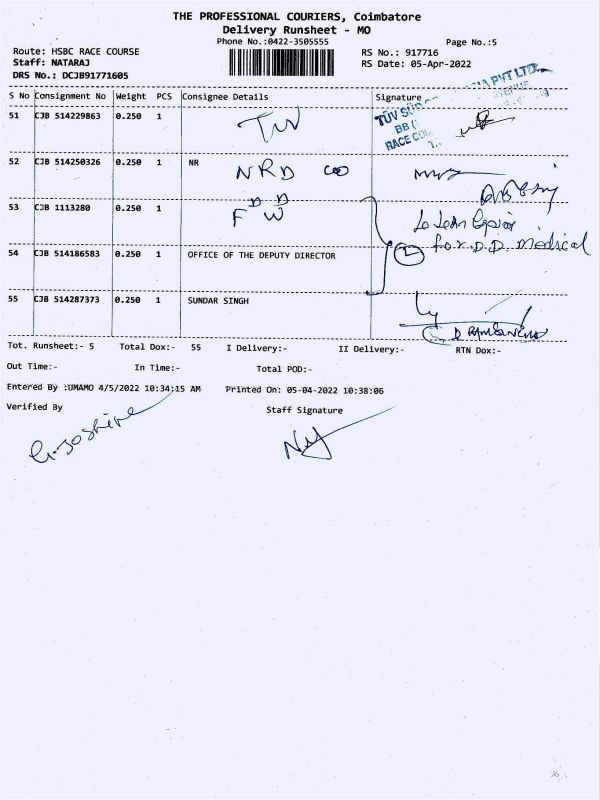 THE PROFESSIONAL COURIERS, Coimbatore
Delivery Runsheet - MO
Phone No.:0422-3505555 Page No.:5
Route: HSBC RACE COURSE RS No.: 917716
Staff: NATARAJ RS Date: 05-Apr-2022
DRS No.: DCJB91771605
S No Consignment No Weight PCS Consignee Details Signature
51 CJB 514229863 0.250 1 TUV
TÜV
RACE
52 CJB 514250326 0.250 1 NR
NRD
53 CJB 1113280 0.250 1
D D
F W
for D.D. Medical
2
54 CJB 514186583 0.250 1 OFFICE OF THE DEPUTY DIRECTOR
55 CJB 514287373 0.250 1 SUNDAR SINGH
Tot. Runsheet:- 5 Total Dox:- 55 I Delivery:- II Delivery:- RTN Dox:-
Out Time:- In Time:- Total POD:-
Entered By :UMAMO 4/5/2022 10:34:15 AM Printed On: 05-04-2022 10:38:06
Verified By Staff Signature